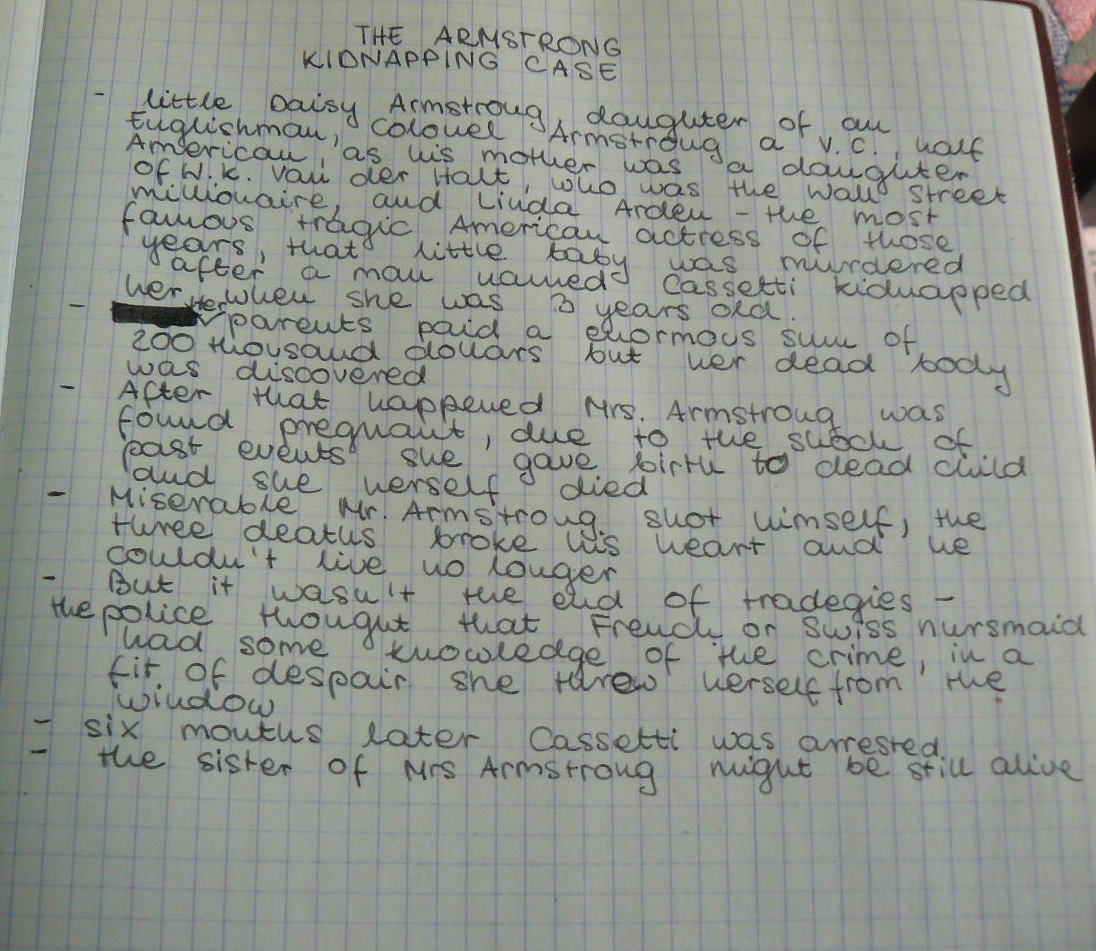 THE ARMSTRONG
KIDNAPPING CASE
- little Daisy Armstrong, daughter of an
Englishman, Colonel Armstrong a V.C., half
American, as his mother was a daughter
of W.K. Van der Halt, who was the Wall Street
millionaire, and Linda Arden - the most
famous tragic American actress of those
years, that little baby was murdered
after a man named Cassetti kidnapped
her when she was 3 years old.
- Her parents paid a enormous sum of
200 thousand dollars but her dead body
was discovered
- After that happened Mrs. Armstrong was
found pregnant, due to the shock of
past events she gave birth to dead child
and she herself died
- Miserable Mr. Armstrong shot himself, the
three deaths broke his heart and he
couldn't live no longer
- But it wasn't the end of tradegies -
the police thought that French or Swiss nursmaid
had some knowledge of the crime, in a
fit of despair she threw herself from the
window
- six months later Cassetti was arrested
- the sister of Mrs Armstrong might be still alive